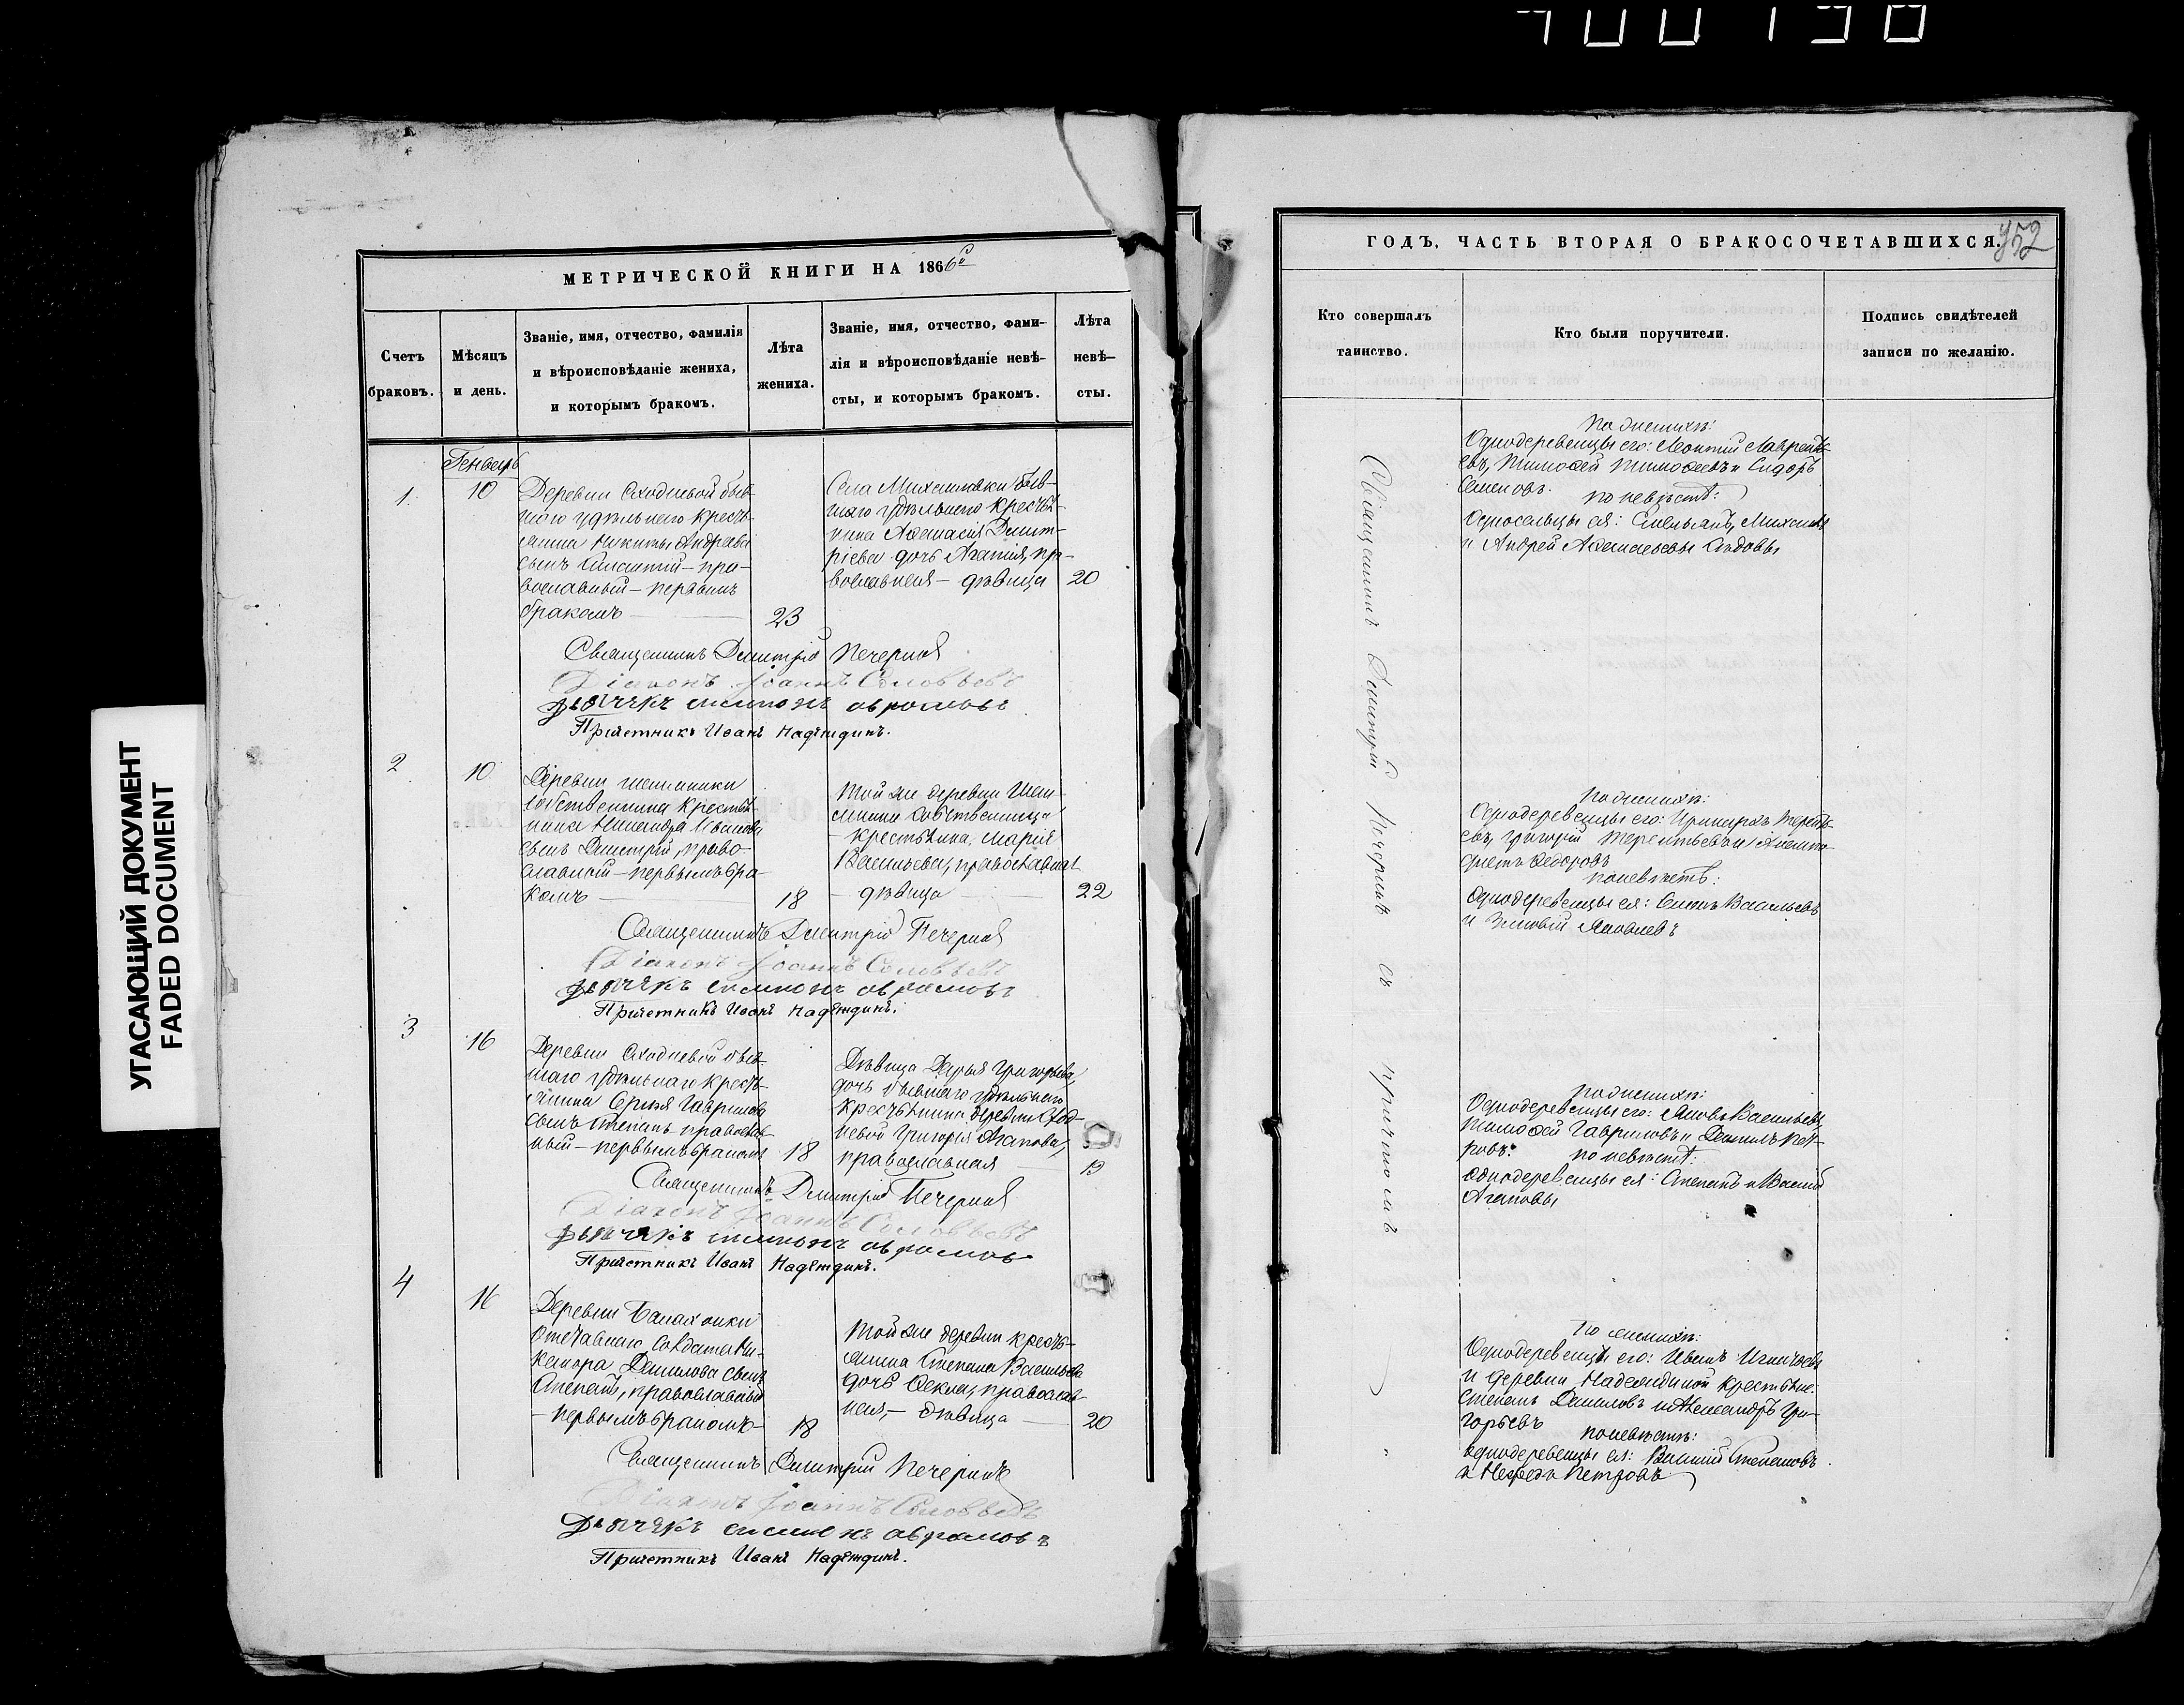 УГАСАЮЩИЙ ДОКУМЕНТ
FADED DOCUMENT
МЕТРИЧЕСКОЙ КНИГИ НА 1866й
Счетъ браковъ.
Мѣсяцъ и день.
Званіе, имя, отчество, фамилія
и вѣроисповѣданіе жениха,
и которымъ бракомъ.
Лѣта
жениха.
Званіе, имя, отчество, фами-
лія и вѣроисповѣданіе невѣ-
сты, и которымъ бракомъ.
Лѣта
невѣ-
сты.
Генварь
1.
10
Деревни Сходневой быв-
шаго удѣльнаго кресть-
янина Никиты Андреева
сынъ православный – первымъ
бракомъ
23
Села Михайловки быв-
шаго удѣльнаго крестья-
нина Афанасія Дмит-
ріева дочь Агапія, пра-
вославная – дѣвица
20
Священникъ Дмитрій Печеринъ
Діаконъ Іоаннъ Соловьевъ
Дьячекъ Симионъ Аврамовъ
Причетникъ Иванъ Надеждинъ.
2
10
Деревни
собственника крестья-
нина Иванова
сынъ Дмитрій, право-
славный – первымъ бра-
комъ
18
Той же деревни
собственница
крестьянка Марія
Васильева, православная
– дѣвица
22
Священникъ Дмитрій Печеринъ
Діаконъ Іоаннъ Соловьевъ
Дьячекъ Симионъ Аврамовъ
Причетникъ Иванъ Надеждинъ.
3
16
Деревни Сходневой быв-
шаго удѣльнаго кресть-
янина Сергѣя Гаврилова
сынъ Степанъ православ-
ный – первымъ бракомъ
18
Дѣвица Дарья Григорьева,
дочь бывшаго удѣльнаго
крестьянина деревни Сход-
невой Григорья Агапова,
православная
19
Священникъ Дмитрій Печеринъ
Діаконъ Іоаннъ Соловьевъ
Дьячекъ Симионъ Аврамовъ
Причетникъ Иванъ Надеждинъ.
4
16
Деревни
отставнаго солдата Ни-
канора Данилова сынъ
Степанъ, православный
– первымъ бракомъ
18
Той же деревни кресть-
янина Степана Васильева
дочь Ѳекла, православ-
ная, – дѣвица
20
Священникъ Дмитрій Печеринъ
Діаконъ Іоаннъ Соловьевъ
Дьячекъ Симионъ Аврамовъ
Причетникъ Иванъ Надеждинъ.
ГОДЪ, ЧАСТЬ ВТОРАЯ О БРАКОСОЧЕТАВШИХСЯ.
Кто совершалъ
таинство.
Кто были поручители.
Подпись свидѣтелей
записи по желанію.
Священникъ Дмитрій Печеринъ съ причтомъ
По женихѣ:
Однодеревенцы его: Леонтій Лаврентъ-
евъ, Тимоѳей Тимоѳеевъ и Сидоръ
Семеновъ.
по невѣстѣ:
Односельцы ея: Емельянъ, Михаилъ
и Андрей
По женихѣ:
Однодеревенцы его: Терентъ-
евъ, Григорій Терентьевъ и
Ѳедоровъ
по невѣстѣ:
Однодеревенцы ея: Васильевъ
и Зиновій Яковлевъ
По женихѣ:
Однодеревенцы его: Яковъ Васильевъ,
Тимоѳей Гавриловъ и Данилъ Пет-
ровъ.
по невѣстѣ:
однодеревенцы ея: Степанъ и Василій
Агаповы
По женихѣ:
Однодеревенцы его: Иванъ Игнатьевъ
и деревни Надеждиной крестьяне
Степанъ Даниловъ и Александръ Гри-
горьевъ
по невѣстѣ:
однодеревенцы ея: Василій Степановъ
и Нефедъ Петровъ